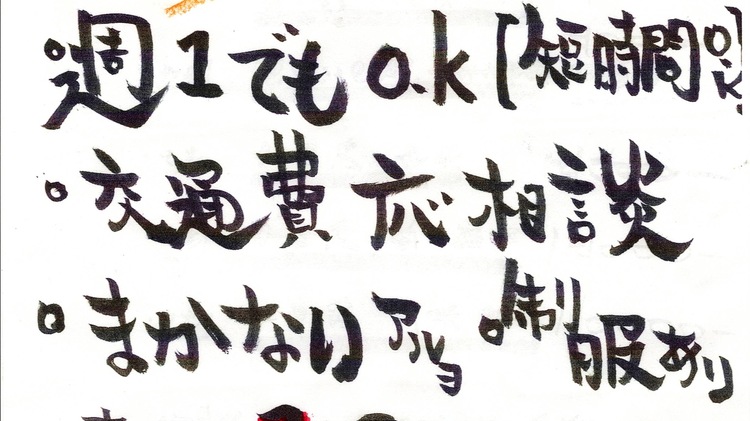 。週1でもO.K【短時間O.K】
。交通費応相談
。まかないアルヨ 。制服あり